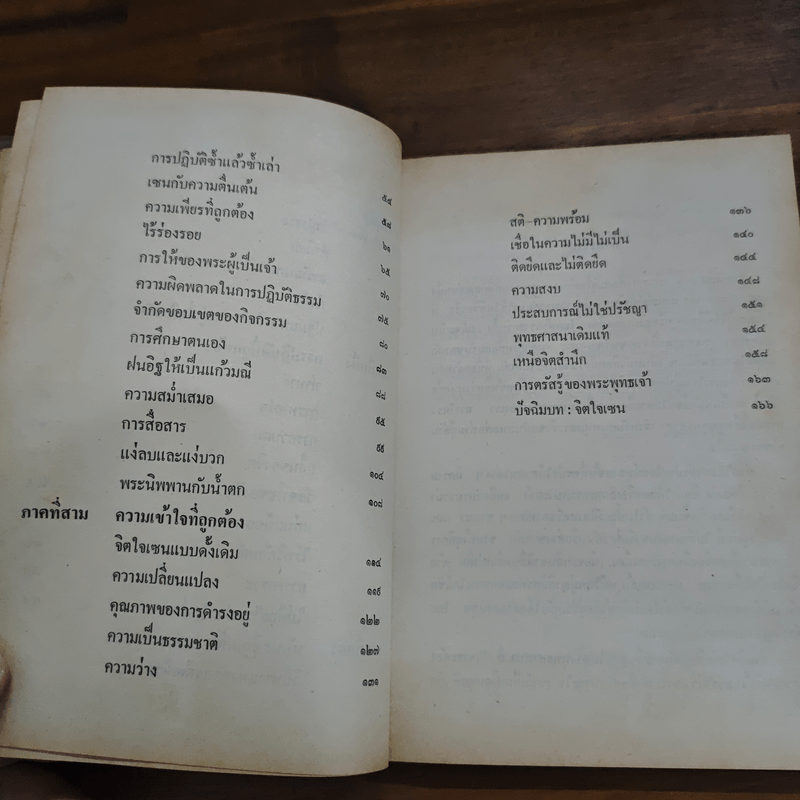 การปฏิบัติซ้ำแล้วซ้ำเล่า ๕๔
เซนกับความตื่นเต้น ๕๘
ความเพียรที่ถูกต้อง ๖๑
ไร้ร่องรอย ๖๕
การให้ของพระผู้เป็นเจ้า ๗๐
ความผิดพลาดในการปฏิบัติธรรม ๗๕
จำกัดขอบเขตของกิจกรรม ๘๐
การศึกษาตนเอง ๘๓
ฝนอิฐให้เป็นแก้วมณี ๘๘
ความสม่ำเสมอ ๙๕
การสื่อสาร ๙๙
แง่ลบและแง่บวก ๑๐๔
พระนิพพานกับน้ำตก ๑๐๘
ภาคที่สาม ความเข้าใจที่ถูกต้อง
จิตใจเซนแบบดั้งเดิม ๑๑๔
ความเปลี่ยนแปลง ๑๑๙
คุณภาพของการดำรงอยู่ ๑๒๒
ความเป็นธรรมชาติ ๑๒๗
ความว่าง ๑๓๑
สติ–ความพร้อม ๑๓๖
เชื่อในความไม่มีไม่เป็น ๑๔๐
ติดยึดและไม่ติดยึด ๑๔๔
ความสงบ ๑๔๘
ประสบการณ์ไม่ใช่ปรัชญา ๑๕๑
พุทธศาสนาเดิมแท้ ๑๕๔
เหนือจิตสำนึก ๑๕๘
การตรัสรู้ของพระพุทธเจ้า ๑๖๓
ปัจฉิมบท : จิตใจเซน ๑๖๖